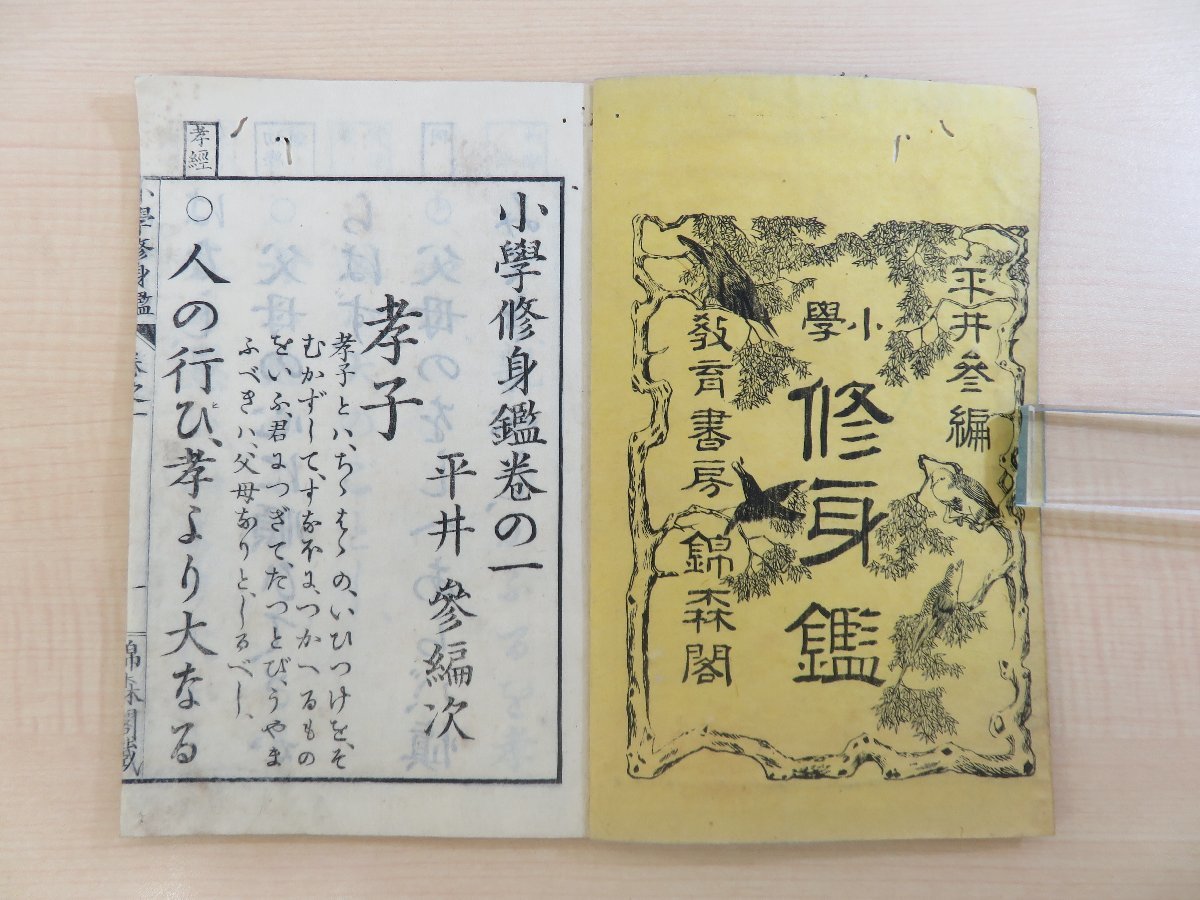 平井參編
小學
修身鑑
教育書房 錦森閣
小學修身鑑卷の一
平井 參編次
孝子
孝子とハ、ちゝはゝの、いひつけを、そ
むかずして、すなほに、つかへるもの
をいふ、君につぎて、たつとび、うやま
ふべきハ、父母なりと、しるべし、
孝經
○人の行ひ、孝より大なる
小學修身鑑
卷之一
一
錦森閣藏